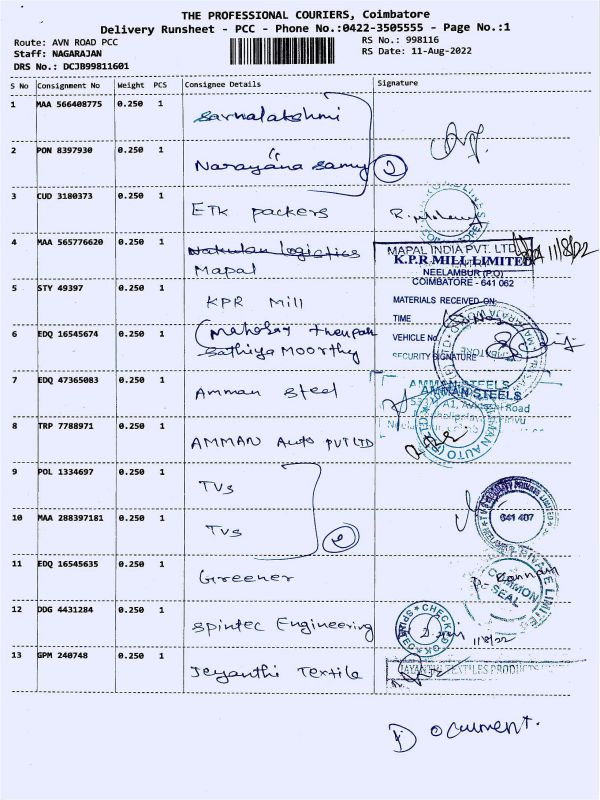 THE PROFESSIONAL COURIERS, Coimbatore
Delivery Runsheet - PCC - Phone No.:0422-3505555 - Page No.:1
Route: AVN ROAD PCC
RS No.: 998116
Staff: NAGARAJAN
RS Date: 11-Aug-2022
DRS No.: DCJB99811601
S No Consignment No Weight PCS Consignee Details Signature
1 MAA 566408775 0.250 1 Sarnalakshmi
2 PON 8397930 0.250 1 Narayana Samy 2
3 CUD 3180373 0.250 1 ETK packers
4 MAA 565776620 0.250 1 Nakulan logistics
Mapal
MAPAL INDIA PVT. LTD
11/8/22
K.P.R MILL LIMITED
NEELAMBUR (P.O)
COIMBATORE - 641 062
5 STY 49397 0.250 1 KPR Mill
MATERIALS RECEIVED ON:
TIME
VEHICLE No.
SECURITY SIGNATURE
6 EDQ 16545674 0.250 1
Sathiya Moorthy
7 EDQ 47365083 0.250 1 Amman Steel
AMMAN STEELS
AMMAN STEELS
8 TRP 7788971 0.250 1 AMMAN Auto PVT LTD
9 POL 1334697 0.250 1 TVS
10 MAA 288397181 0.250 1 TVS 2
641 407
11 EDQ 16545635 0.250 1 Greener
COMMON SEAL
12 DDG 4431284 0.250 1 Spintec Engineering
CHECKED
11/8/22
13 GPM 240748 0.250 1 Jeyanthi Textile
JAYANTHI TEXTILES PRODUCTS
Document.